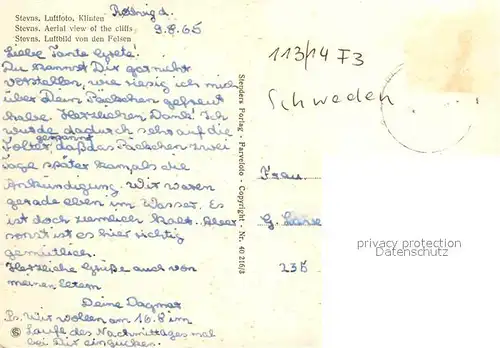 Stevns. Luftfoto. Klinten
Stevns. Aerial view of the cliffs
Stevns. Luftbild von den Felsen
Rødvig d.
9.8.65
Liebe Tante Gretel!
Du kannst Dir gar nicht
vorstellen, wie riesig ich mich
über Dein Päckchen gefreut
habe. Herzlichen Dank! Ich
wurde dadurch sehr auf die
Folter gespannt, daß das Päckchen zwei
Tage später kam als die
Ankündigung. Wir waren
gerade eben im Wasser. Es
ist doch ziemlich kalt. Aber
sonst ist es hier richtig
gemütlich.
Herzliche Grüße auch von
meinen Eltern
Deine Dagmar
Ps. Wir wollen am 16.8 im
Laufe des Nachmittages mal
bei Dir eingucken.
Stenders Forlag - Farvefoto - Copyright - Nr. 40 216/3
113/14 F3
Schweden
Frau
G.
23b
privacy protection
privacy protection